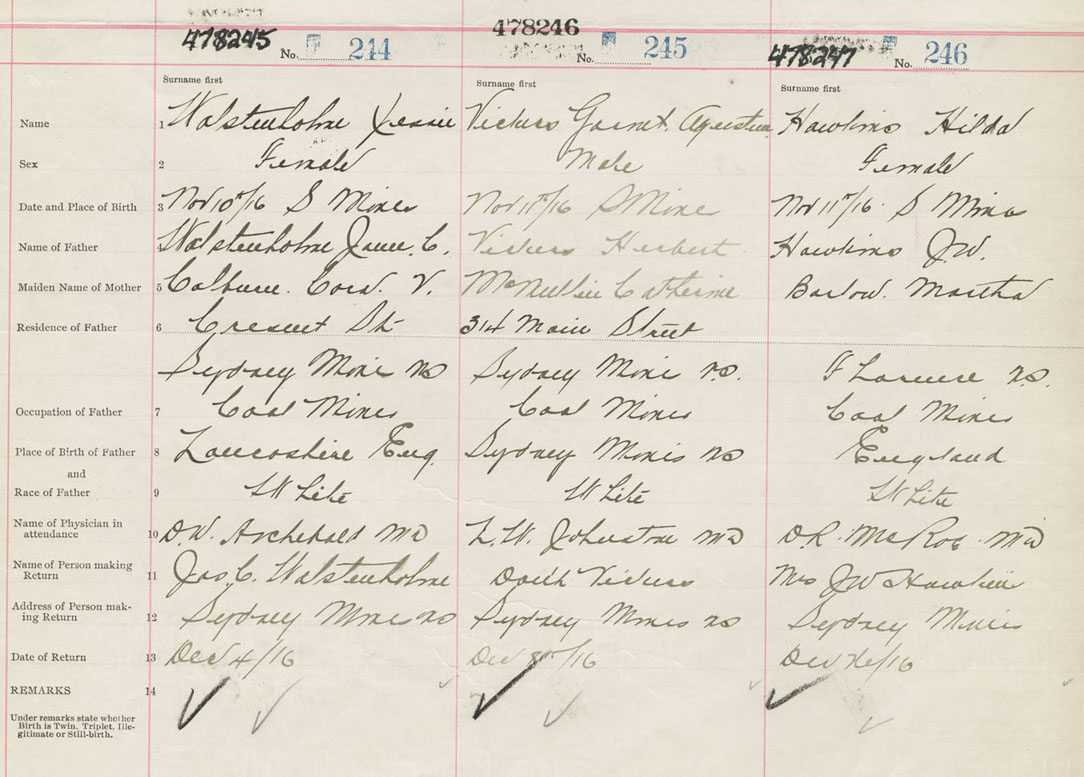 478245 No. 244 478246 No. 245 478247 No. 246
Surname first Surname first Surname first
Name 1 Walstenholme Jessie Vickers Garnet Hawkins Hilda
Sex 2 Female Male Female
Date and Place of Birth 3 Nov 10th/16 S Mines Nov 11th/16 S Mine Nov 11th/16 S Mines
Name of Father 4 Walstenholme James C. Vickers Herbert Hawkins J.W.
Maiden Name of Mother 5 Cora V. Catherine Barlow. Martha
Residence of Father 6 Cresent St 314 Main Street
Sydney Mine NS Sydney Mine N.S. Florence N.S.
Occupation of Father 7 Coal Miner Coal Miner Coal Miner
Place of Birth of Father 8 Lancashire Eng. Sydney Mines NS England
and
Race of Father 9 White White White
Name of Physician in
attendance 10 D.W. Archibald MD L.W. Johnstone MD D.R. McRae MD
Name of Person making
Return 11 Jas C. Walstenholme Vickers Mrs JW Hawkins
Address of Person mak-
ing Return 12 Sydney Mines NS Sydney Mines NS Sydney Mines
Date of Return 13 Dec 4/16 Dec 8th/16 Dec /16
REMARKS 14
Under remarks state whether
Birth is Twin, Triplet, Ille-
gitimate or Still-birth.